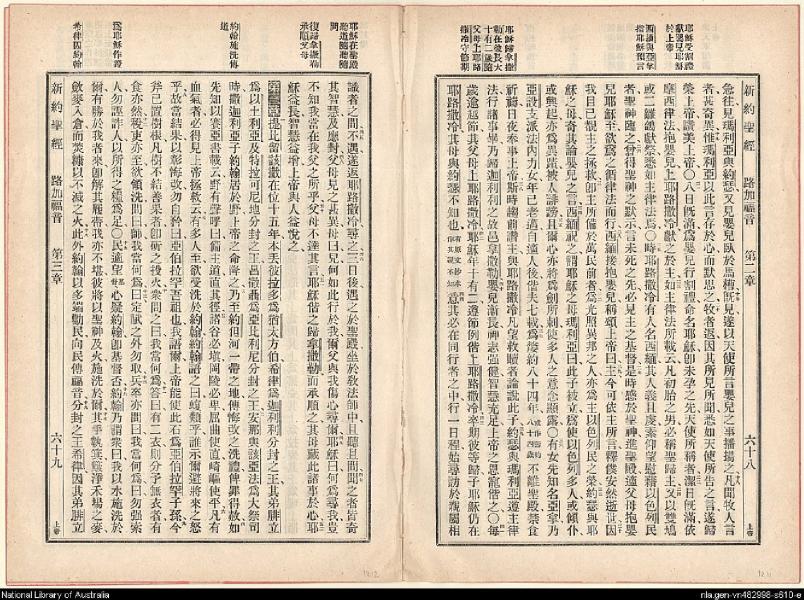 耶穌受割禮
獻嬰兒耶穌
於上帝
西緬與亞拿
指耶穌預言
耶穌歸拿撒
勒在彼長大
十有二歲隨
父母上耶路
撒冷守節期
新約聖經 路加福音 第二章 六十八 上帝
急往、見瑪利亞與約瑟、又見嬰兒臥於馬槽、既見、遂以天使所言嬰兒之事播揚之、凡聞牧人言
者、甚奇異、惟瑪利亞以此言存於心而默思之、牧者返、因其所見所聞、悉如天使所告之言、遂歸
榮上帝、讚美上帝、〇八日既滿、為嬰兒行割禮、命名耶穌、卽未孕之先、天使所稱者、潔日既滿、依
摩西律法、抱嬰兒上耶路撒冷、獻之於主、如主律法所載云、凡初胎之男、必稱聖歸主、又以雙鳩
或二雛鴿獻祭、悉如主律法焉、〇時耶路撒冷有人名西緬、其人義且虔、素仰望慰藉以色列民
者、聖神臨之、曾得聖神之默示、言未死之先、必見主之基督、是時感於聖神、進聖殿、適父母抱嬰
兒耶穌至、欲為之循律法而行、西緬接抱嬰兒、稱頌上帝曰、主今可依主所言、釋僕安然逝世、因
我目已覩主之拯救、卽主所備於萬民前者、為光照異邦之人、亦為主以色列民之榮、約瑟與耶
穌之母、奇其論嬰兒之言、西緬祝之、謂耶穌之母瑪利亞曰、此子被立、為使以色列多人、或傾仆、
或興起、亦為異蹟、被人誹謗、且爾心亦將為劍所刺、使多人之意念顯露、〇有女先知名亞拿、乃
亞設支派法內力女、年已老邁、自適人後、偕夫七載、為嫠約八十四年、或作嫠約八十四歲 不離聖殿、禁食
祈禱、日夜奉事上帝、斯時趨前讚主、與耶路撒冷凡望救贖者、論說此子、約瑟與瑪利亞遵主律
法行諸事畢、乃歸迦利利之故邑拿撒勒、嬰兒漸長、神志強健、智慧充足、上帝之恩寵偕之、〇每
歲逾越節、其父母上耶路撒冷、耶穌年十有二、遵節例偕上耶路撒冷、卒期、彼等歸、子耶穌仍在
耶路撒冷、其母與約瑟不知也、有原文抄本作父母不知 意其必在同行者之中、行一日程、始尋訪於親屬相
耶穌在聖殿
聽道隨聽隨
問
復歸拿撒勒
承順父母
約翰施洗傳
道
為耶穌作證
希律囚約翰
識者之間、不遇、遂返耶路撒冷尋之、三日後、遇之於聖殿、坐於敎法師中、且聽且問、聞之者皆奇
其智慧及應對、父母見之甚異、母曰、兒何如此行於我、爾父與我傷心尋爾、耶穌曰、何為尋我、豈
不知我當在我父之所乎、父母不達其言、耶穌偕之歸拿撒勒、而承順之、其母藏此諸事於心、耶
穌益長、智慧益增、上帝與人益悅之、
第三章 提比留該撒在位十五年、本丟彼拉多為猶太方伯、希律為迦利利分封之王、其弟腓立
為以土利亞及特拉可尼地分封之王、呂撒聶為亞比利尼分封之王、安那與該亞法為大祭司、
時撒迦利亞子約翰居於野、上帝之命降之、乃至約但河一帶之地、傳悔改之洗禮、俾罪得赦、如
先知以賽亞書載云、野有聲呼曰、備主道、直其徑、諸谷必塡、岡陵必卑、屈曲使直、崎嶇使平、凡有
血氣者、必得見上帝拯救云、有多人至欲受洗於約翰、約翰語之曰、蝮類乎、誰示爾避將來之怒
乎、故當結果以彰悔改、勿自矜曰、亞伯拉罕吾祖也、我語爾、上帝能使此石為亞伯拉罕子孫、今
斧已置樹根、凡樹不結善果者、卽斫之投火、眾問之曰、我當何為、答曰、有二衣則分予無衣者、有
食亦然、稅吏亦至欲領洗、問曰、師、我當何為、曰、定賦之外勿取、兵卒亦問曰、我當何為、曰、勿強索
人、勿誣詐人、以所得之糧為足、〇民適望基督 心疑約翰卽基督否、約翰乃謂眾曰、我以水施洗於
爾、有勝於我者來、卽解其履帶、我亦不堪、彼將以聖神及火施洗於爾、其手執箕、簸淨禾場之麥、
斂麥入倉、而焚穅以不滅之火、此外約翰以多端勸民、向民傳福音、分封之王希律、因其弟腓立
新約聖經 路加福音 第三章 六十九 上帝
1212
1211
National Library of Australia
nla.gen-vn482998-s610-e